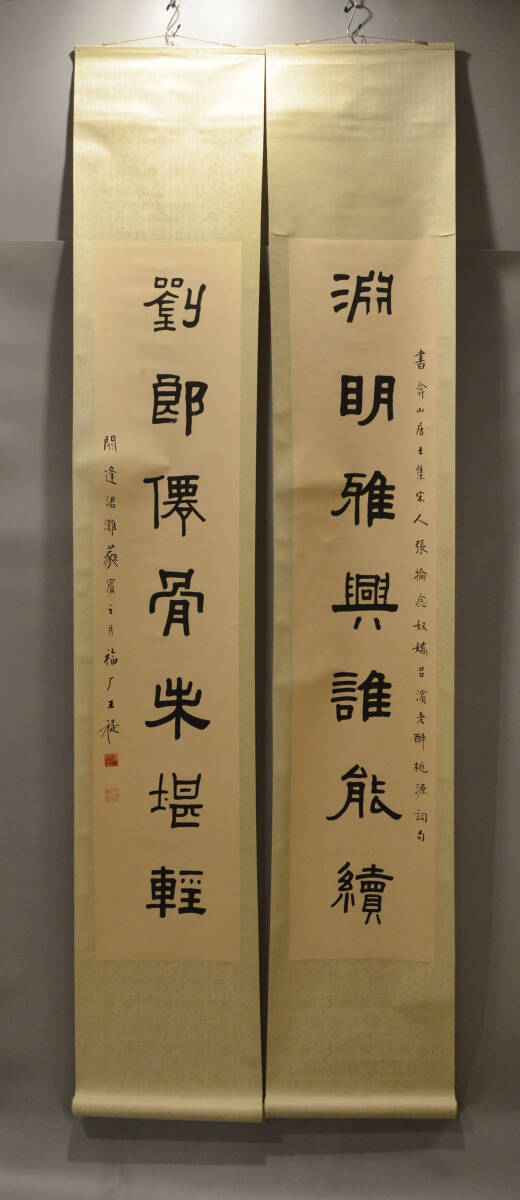 書弇山居士集宋人張掄念奴嬌呂濱老醉桃源詞句
淵明雅興誰能續
劉郎僊骨未堪輕
閼逢涒灘蕤賓之月福厂王禔